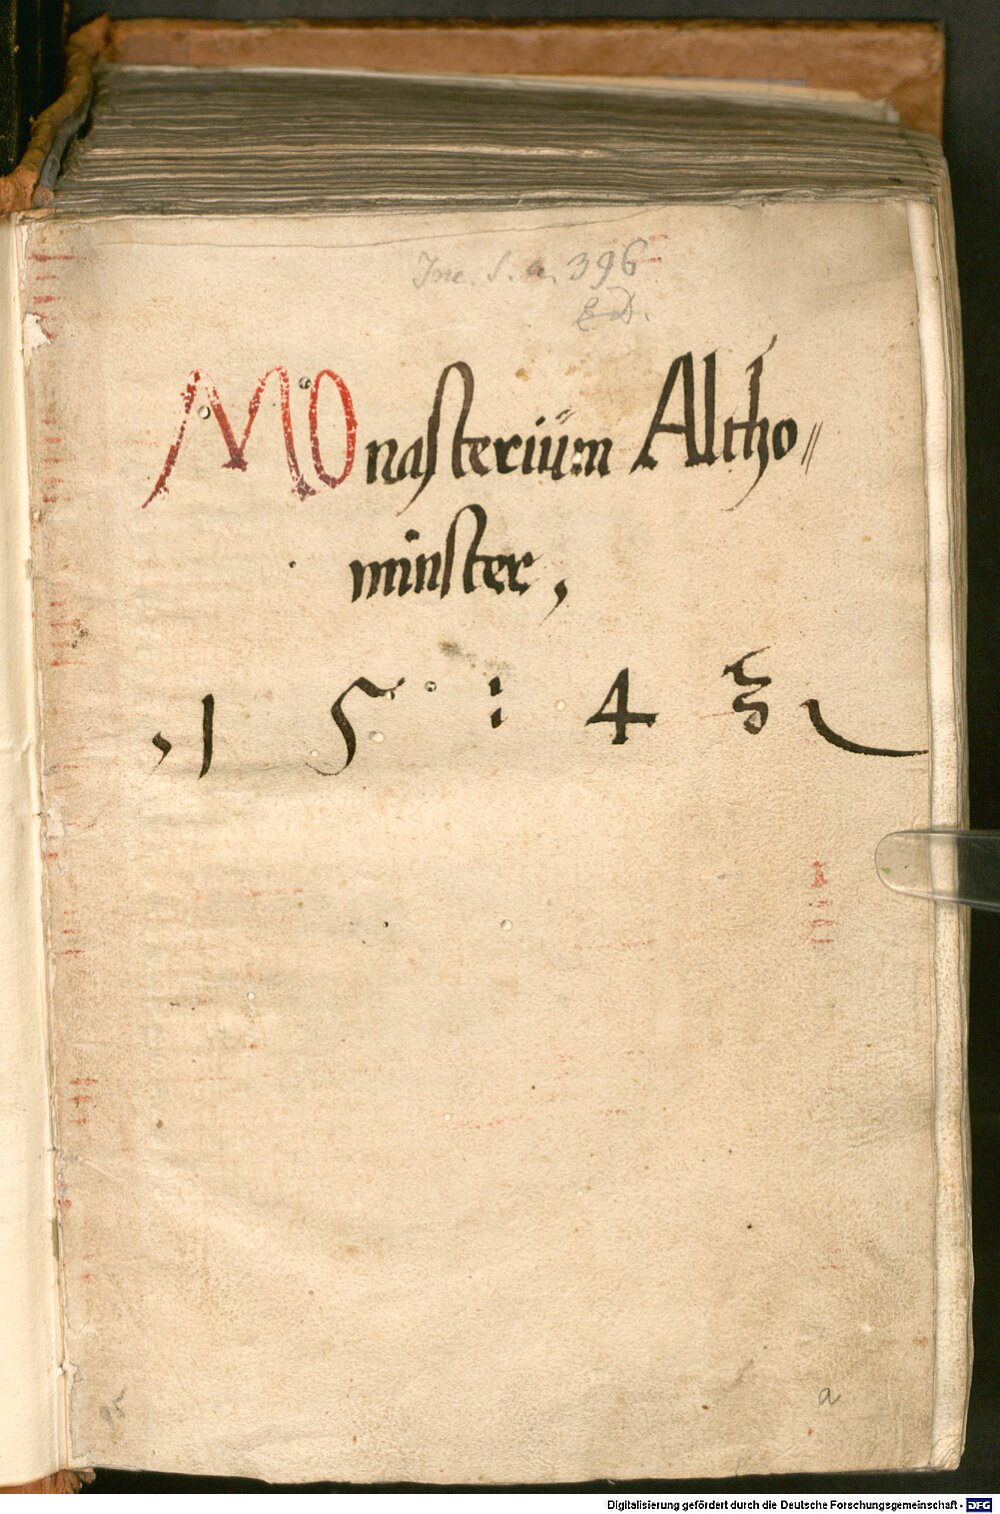 Inc. S. a. 396
ED.
MOnasteriüm Altho=
minster,
,1 5 : 4 3
a
95
Digitalisierung gefördert durch die Deutsche Forschungsgemeinschaft - DFG